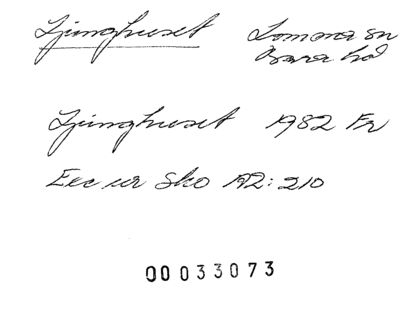 Ljunghuset Lomma sn
Bara hd
Ljunghuset 1982 Fr
Exc ur Sko A2:210
00 033073